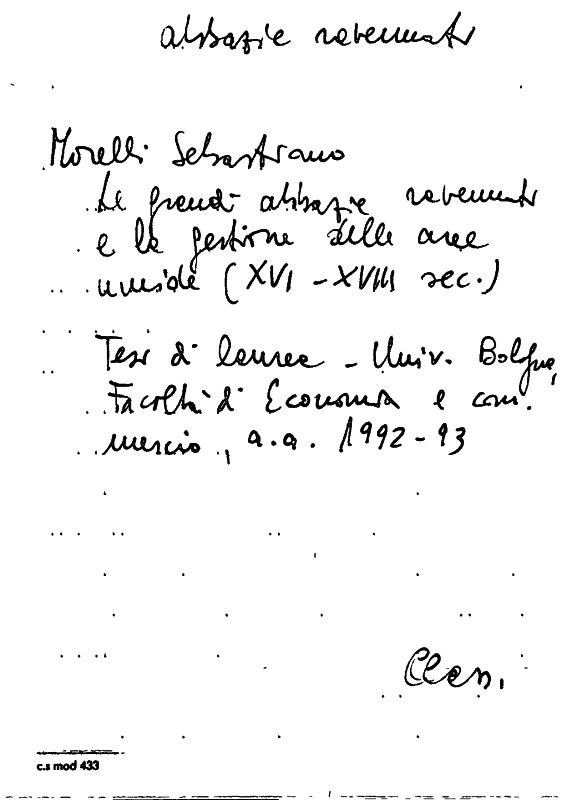 abbazie ravennati
Morelli Sebastiano
Le grandi abbazie ravennati
e la gestione delle aree
umide (XVI - XVIII sec.)
Tesi di laurea - Univ. Bologna,
Facoltà di Economia e com.
mercio, a.a. 1992-93
c.s mod 433